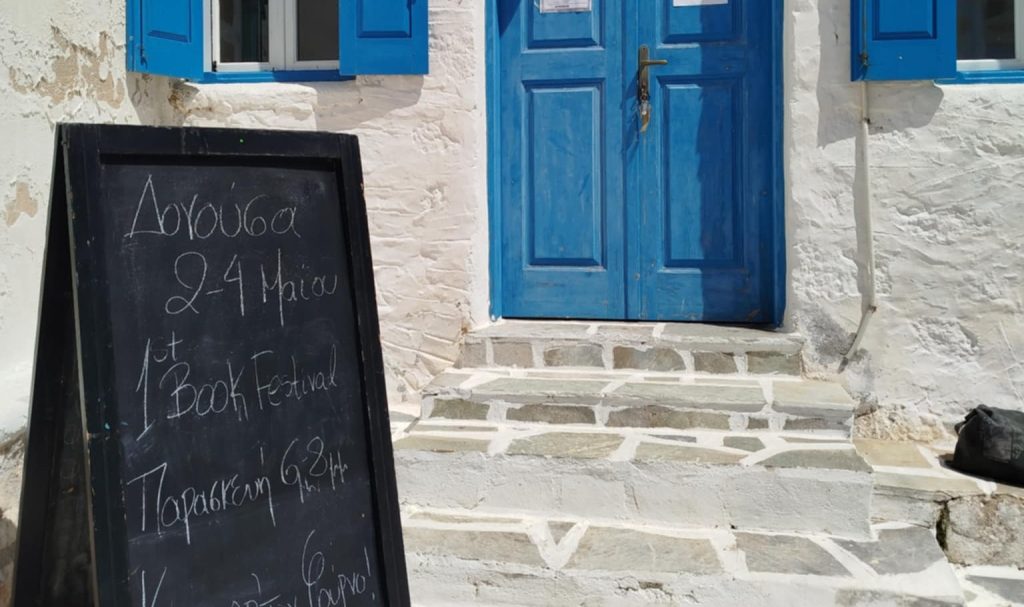 Δονούσα
2-4 Μαϊου
1st
Book Festival
Παρασκευή 6-8 μμ
φούρνο!